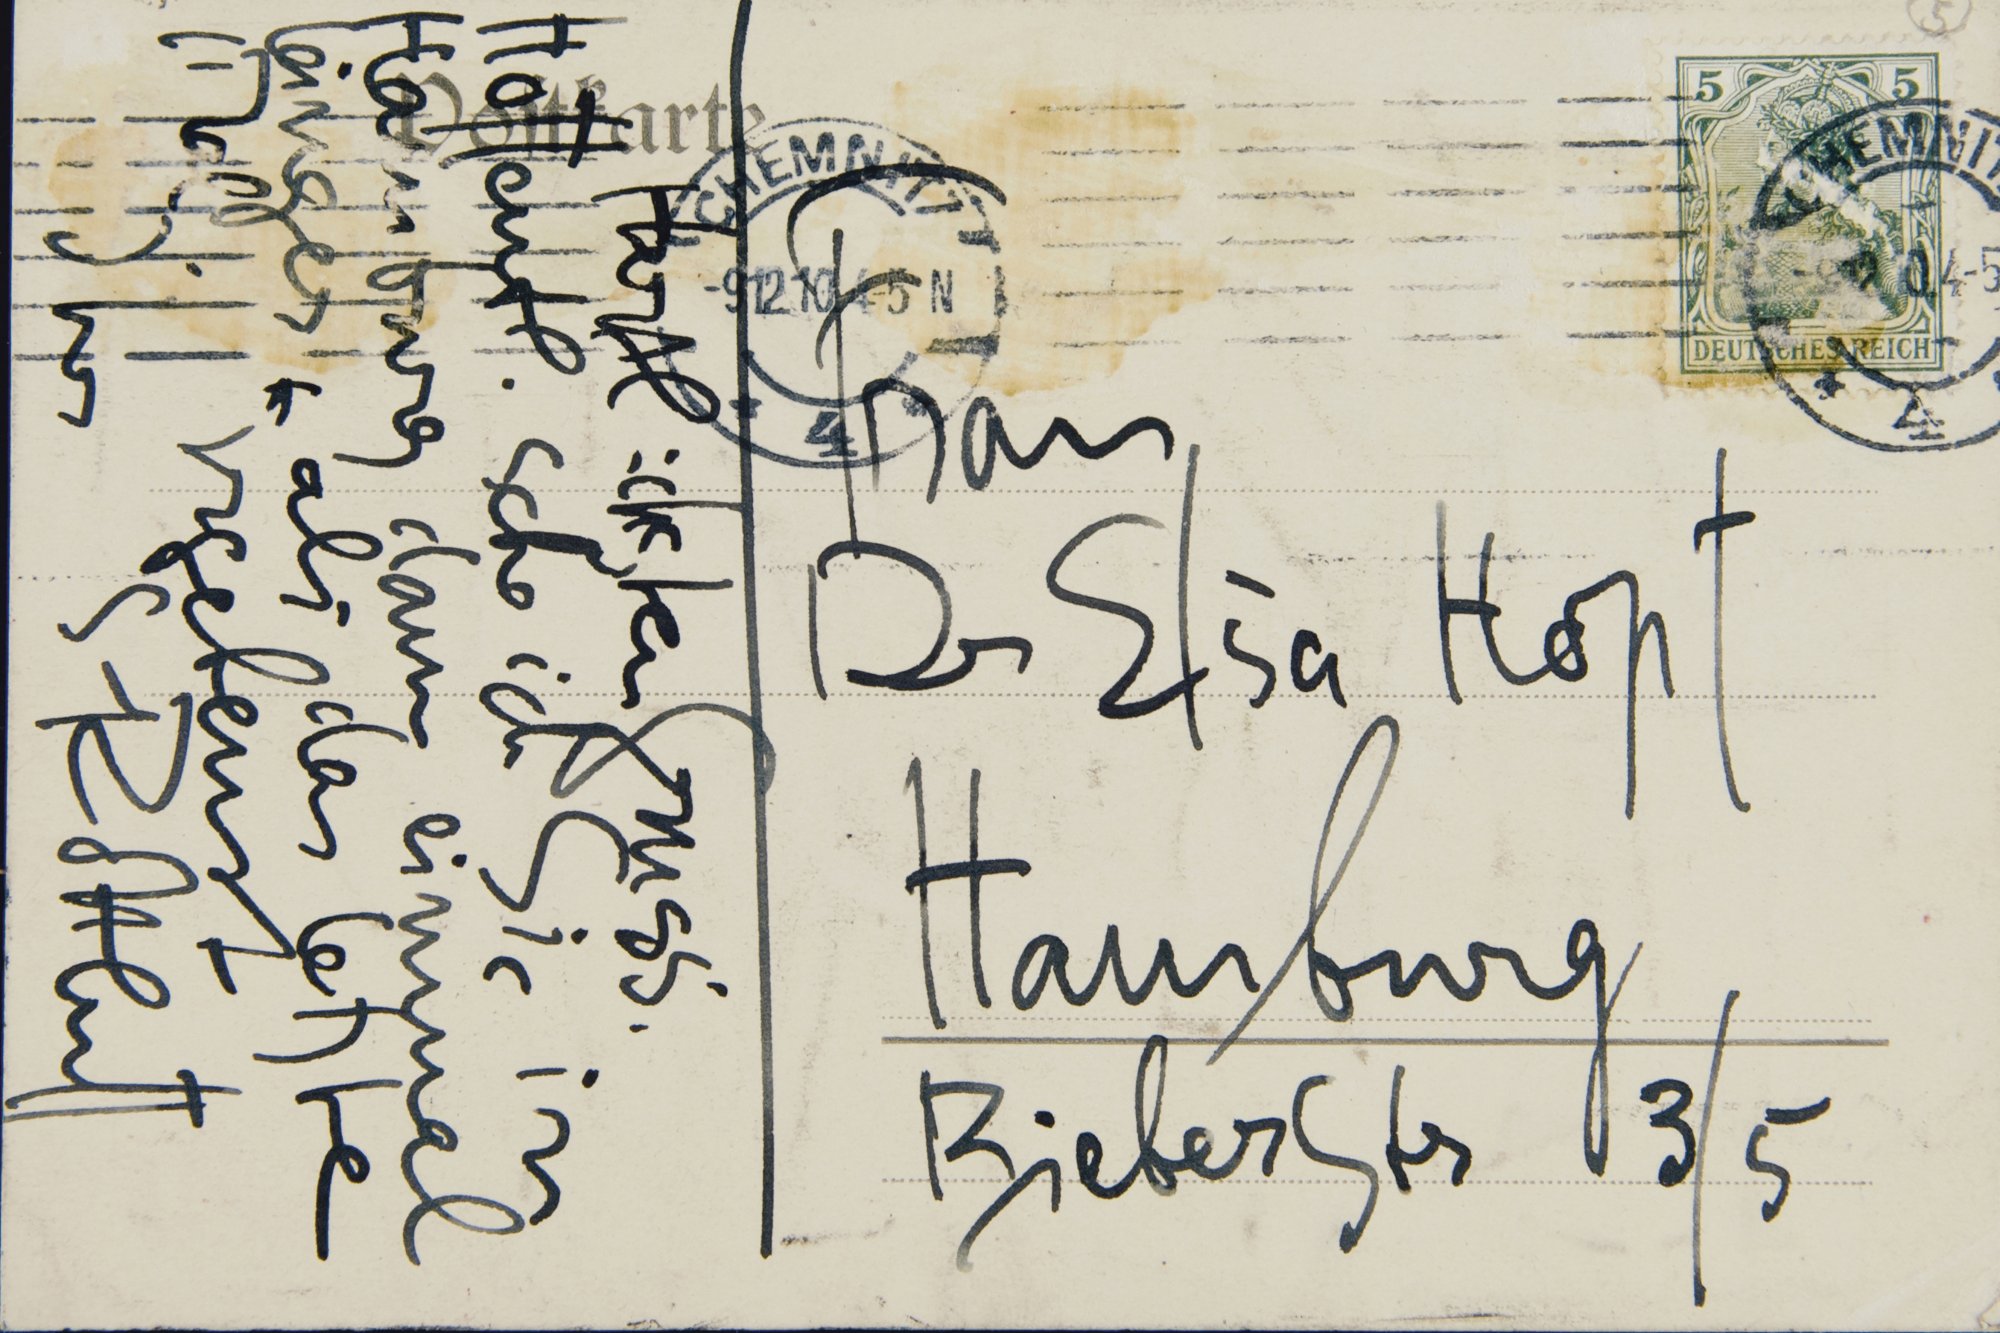 Postkarte
CHEMNITZ
-9.12.10 4-5 N
* 4 *
5 5
DEUTSCHES REICH
CHEMNITZ
4-5
* 4
5
Gruss.
Hoffent. sehe ich Sie in
Hamburg dann einmal
länger als das letzte
Ihr SRottluff
Frau
Dr Elsa Hopf
Hamburg
BieberStr 3/5